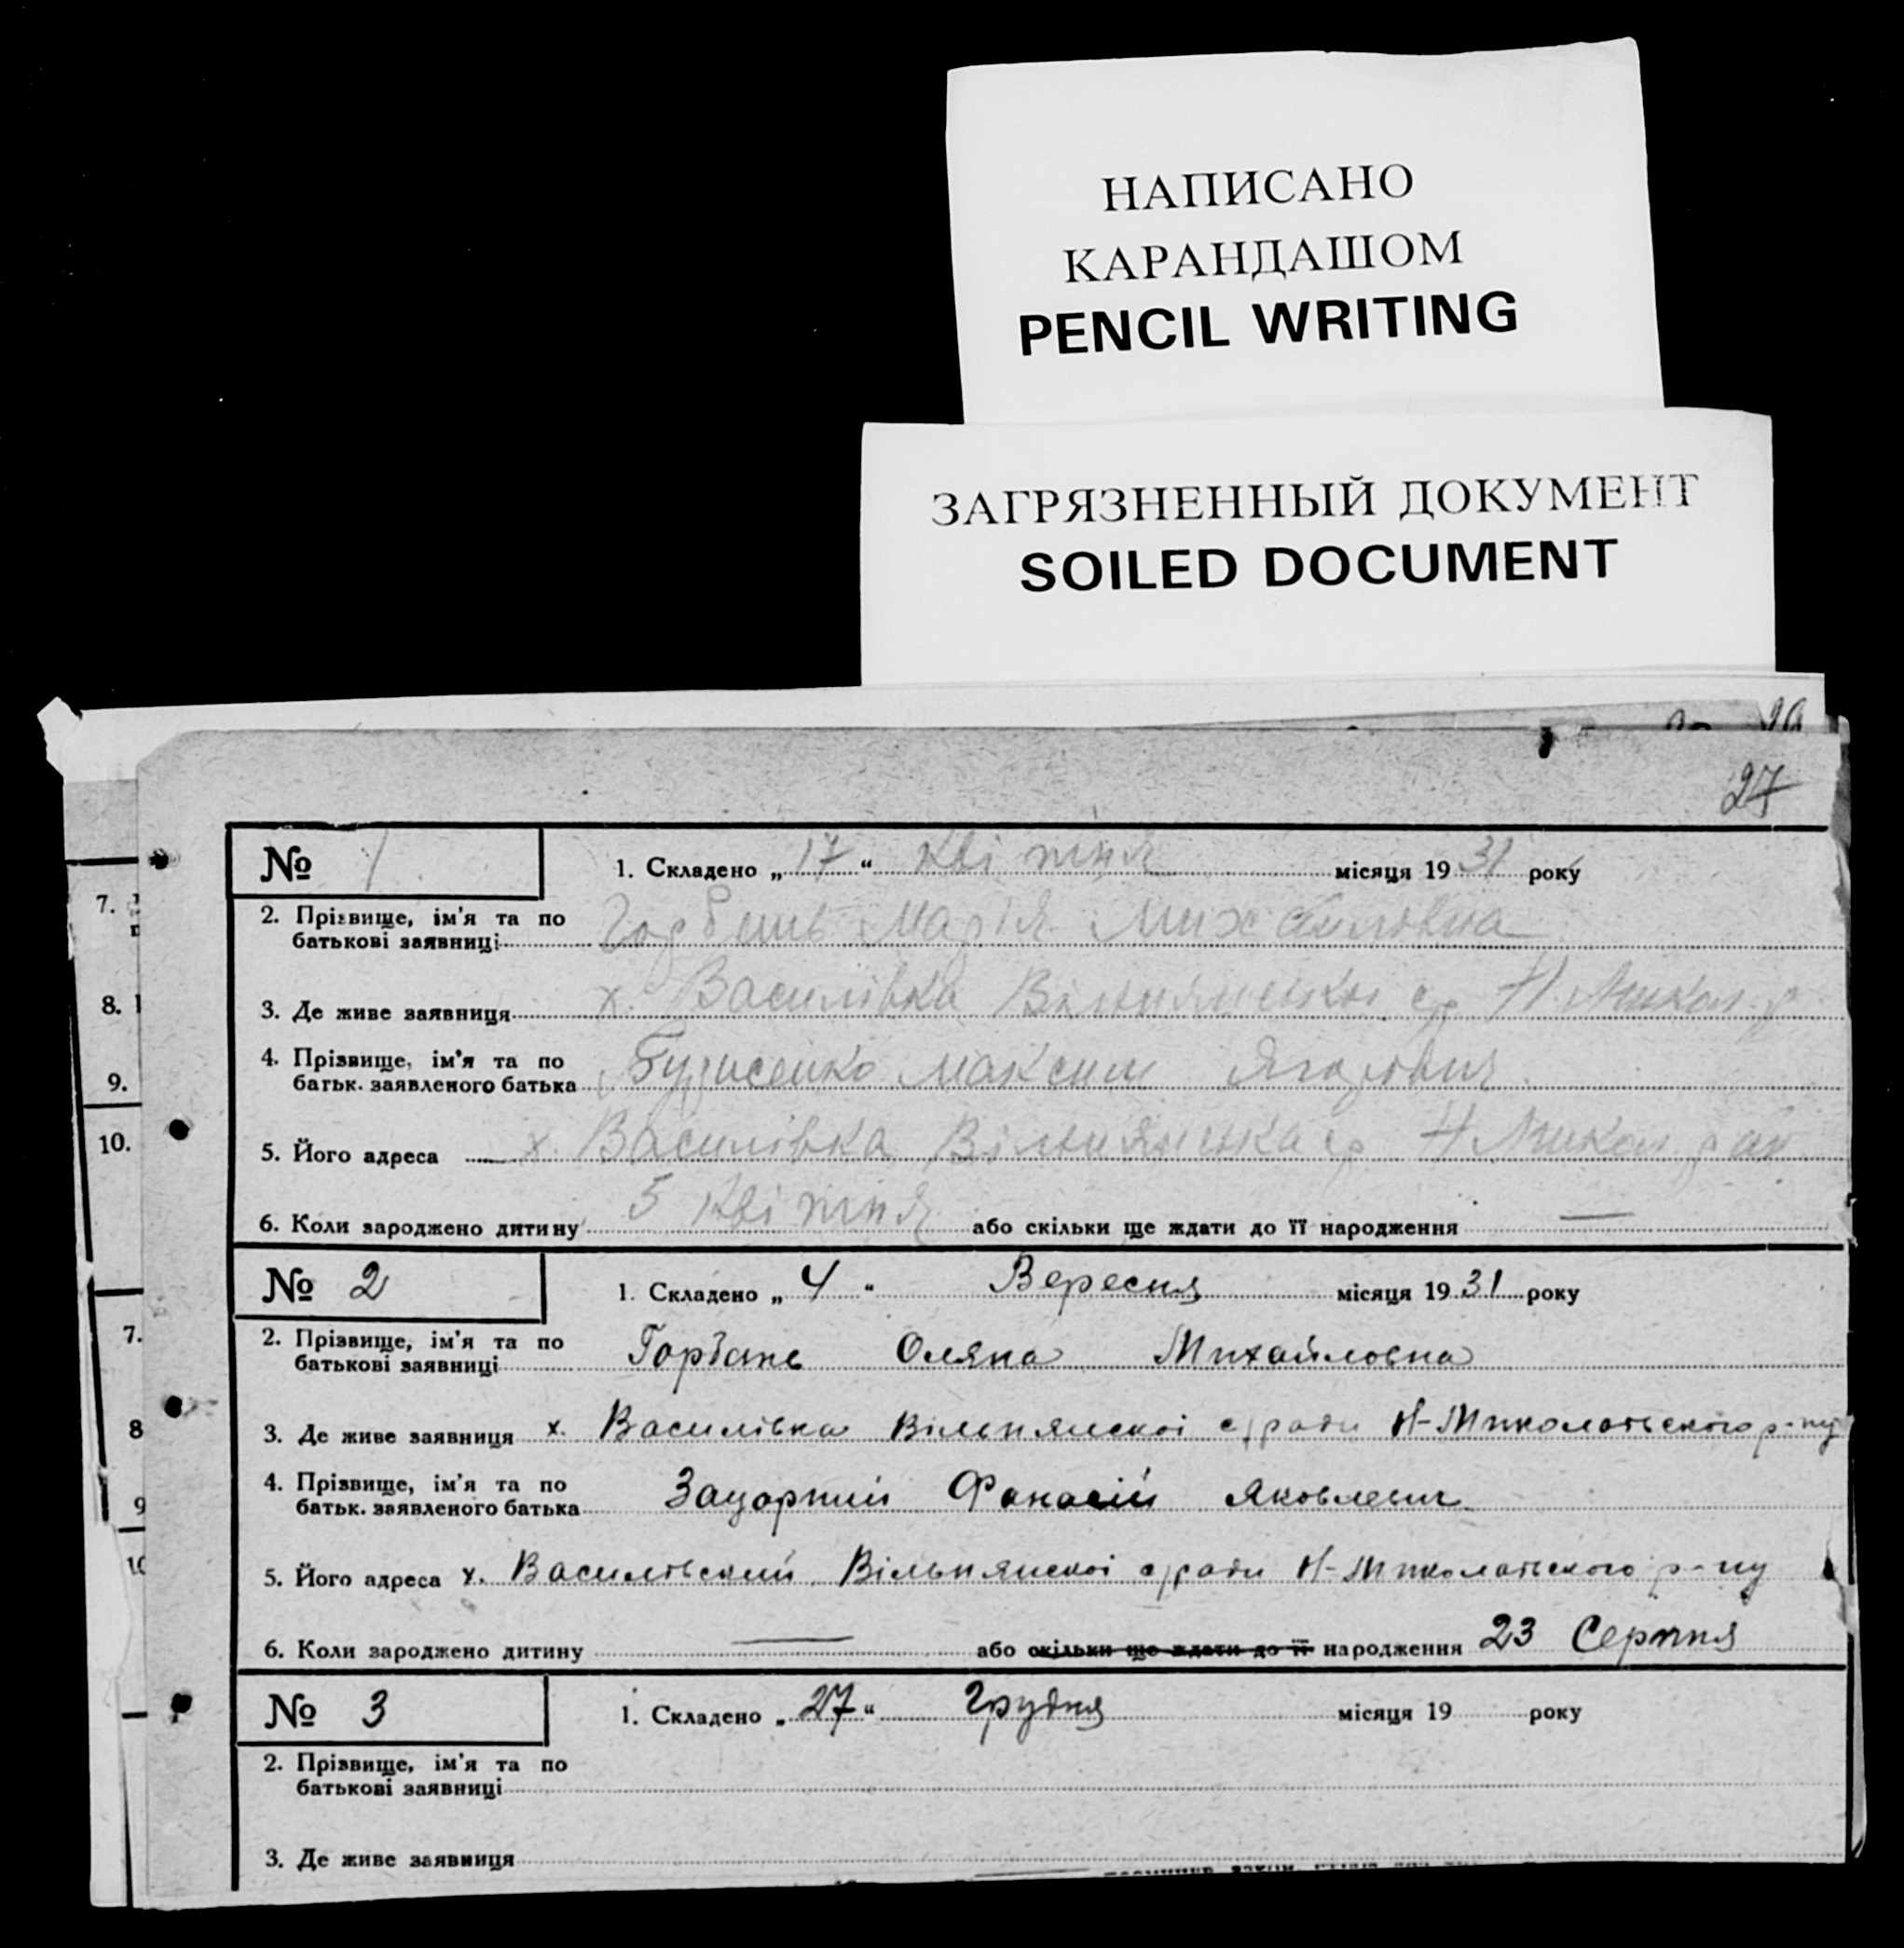 НАПИСАНО
КАРАНДАШОМ
PENCIL WRITING
ЗАГРЯЗНЕННЫЙ ДОКУМЕНТ
SOILED DOCUMENT
27
№ 1
1. Складено „ 17 “ Квітня місяця 19 31 року
2. Прізвище, ім'я та по
батькові заявниці Марія Михайловна
3. Де живе заявниця х. Василівка с р Н. Микол. р
4. Прізвище, ім'я та по
батьк. заявленого батька Максим
5. Його адреса х. Василівка с р Н Микол. рай
6. Коли зароджено дитину 5 Квітня або скільки ще ждати до її народження —
№ 2
1. Складено „ 4 “ Вересня місяця 19 31 року
2. Прізвище, ім'я та по
батькові заявниці Горбань Оляна Михайловна
3. Де живе заявниця х. Василівка Вільнянскоі с/ради Н-Миколаівського р-ну
4. Прізвище, ім'я та по
батьк. заявленого батька Фанасій Яковлевич
5. Його адреса х. Василівський Вільнянскоі с/ради Н-Миколаівського р-ну
6. Коли зароджено дитину — або скільки ще ждати до її народження 23 Серпня
№ 3
1. Складено „ 27 “ Грудня місяця 19 року
2. Прізвище, ім'я та по
батькові заявниці
3. Де живе заявниця
7.
8.
9.
10.
7.
8
9